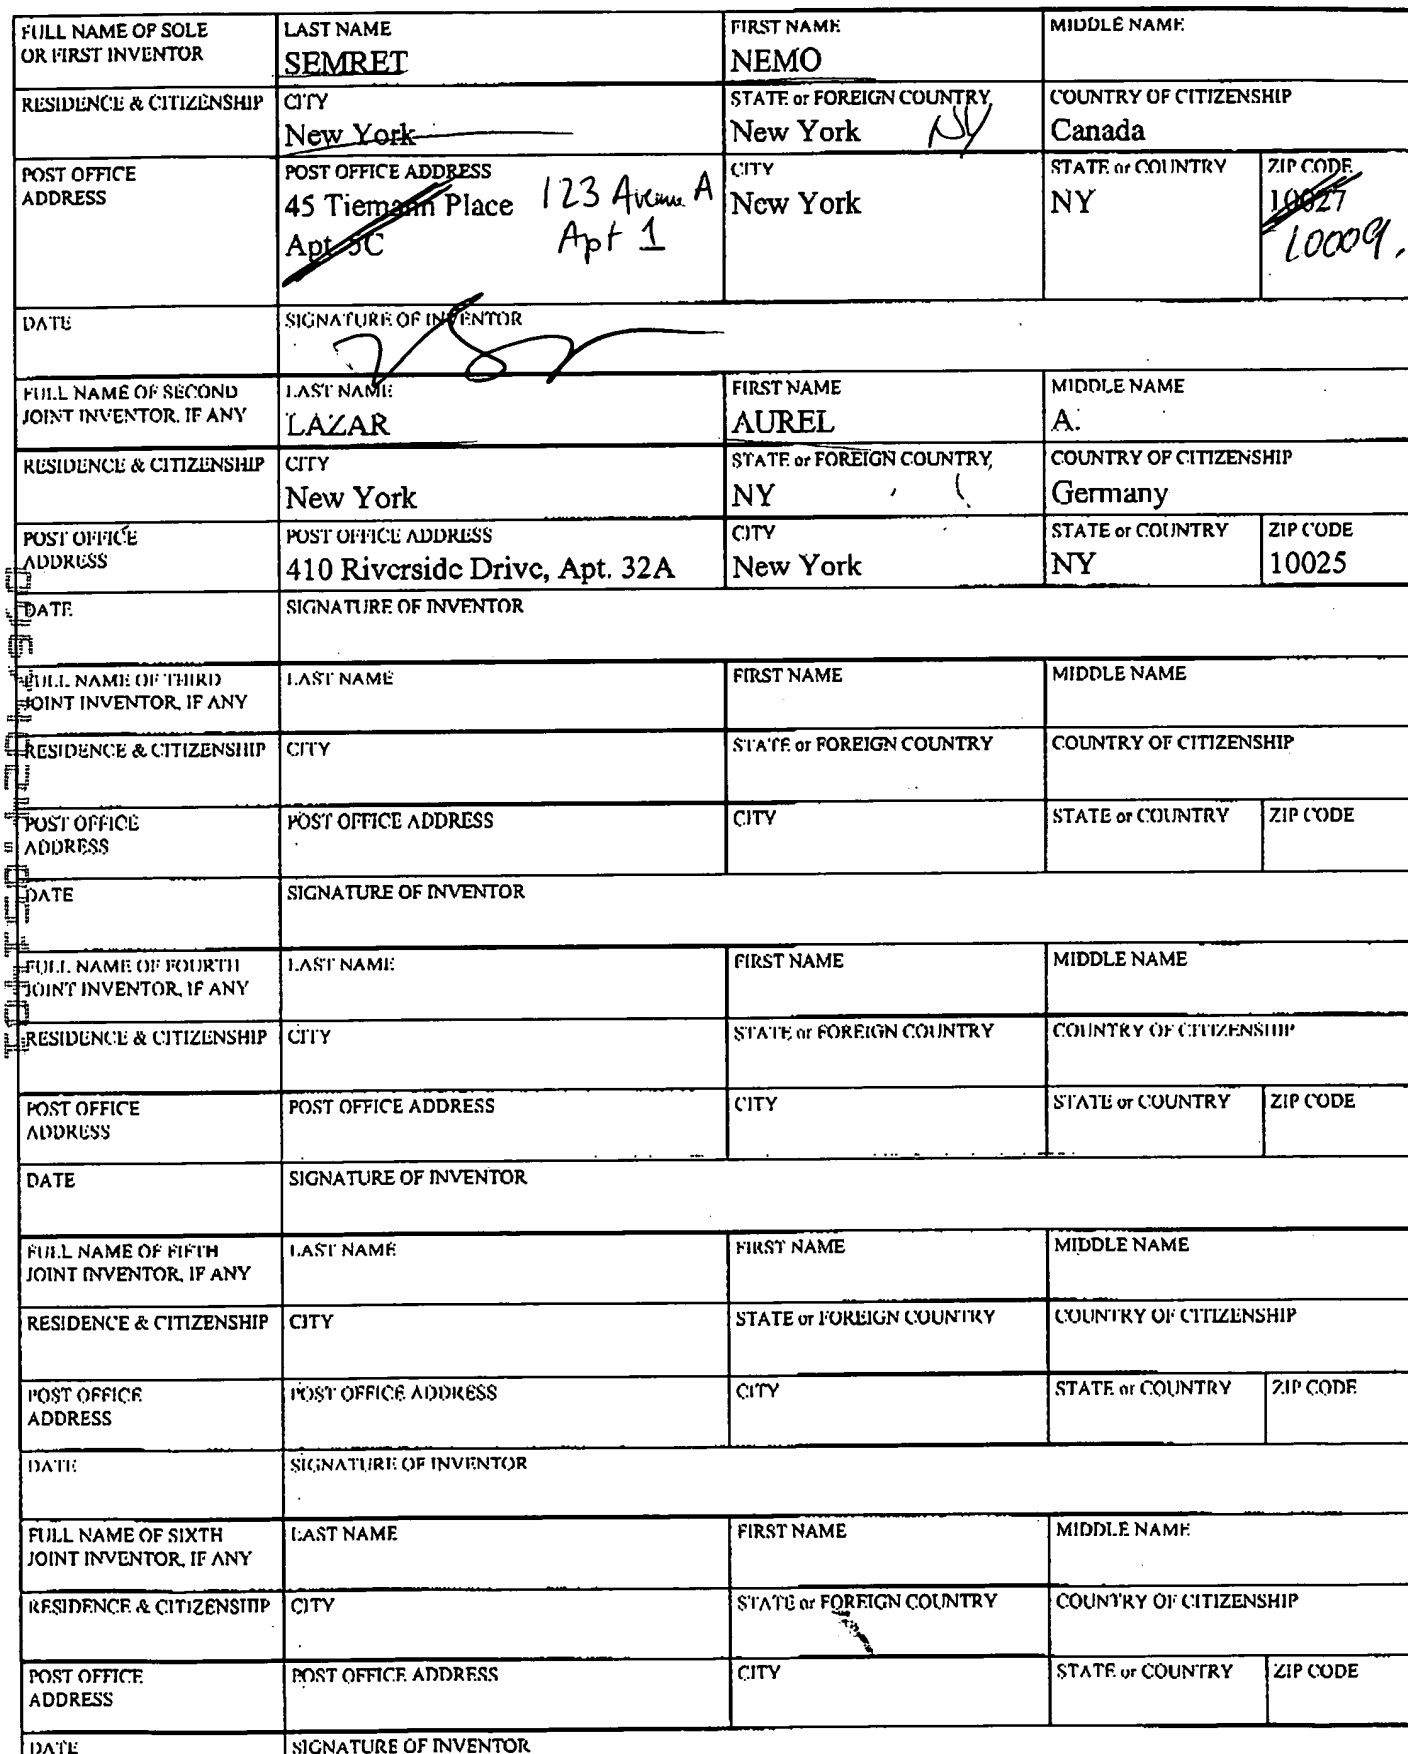 FULL NAME OF SOLE OR FIRST INVENTOR
LAST NAME
SEMRET
FIRST NAME
NEMO
MIDDLE NAME
RESIDENCE & CITIZENSHIP
CITY
New York
STATE or FOREIGN COUNTRY
New York NY
COUNTRY OF CITIZENSHIP
Canada
POST OFFICE
ADDRESS
POST OFFICE ADDRESS
45 Tiemann Place
Apt 5C
123 Avenue A
Apt 1
CITY
New York
STATE or COUNTRY
NY
ZIP CODE
10027
10009.
DATE
SIGNATURE OF INVENTOR
FULL NAME OF SECOND
JOINT INVENTOR, IF ANY
LAST NAME
LAZAR
FIRST NAME
AUREL
MIDDLE NAME
A.
RESIDENCE & CITIZENSHIP
CITY
New York
STATE or FOREIGN COUNTRY
NY
COUNTRY OF CITIZENSHIP
Germany
POST OFFICE
ADDRESS
POST OFFICE ADDRESS
410 Riverside Drive, Apt. 32A
CITY
New York
STATE or COUNTRY
NY
ZIP CODE
10025
DATE
SIGNATURE OF INVENTOR
FULL NAME OF THIRD
JOINT INVENTOR, IF ANY
LAST NAME
FIRST NAME
MIDDLE NAME
RESIDENCE & CITIZENSHIP
CITY
STATE or FOREIGN COUNTRY
COUNTRY OF CITIZENSHIP
POST OFFICE
ADDRESS
POST OFFICE ADDRESS
CITY
STATE or COUNTRY
ZIP CODE
DATE
SIGNATURE OF INVENTOR
FULL NAME OF FOURTH
JOINT INVENTOR, IF ANY
LAST NAME
FIRST NAME
MIDDLE NAME
RESIDENCE & CITIZENSHIP
CITY
STATE or FOREIGN COUNTRY
COUNTRY OF CITIZENSHIP
POST OFFICE
ADDRESS
POST OFFICE ADDRESS
CITY
STATE or COUNTRY
ZIP CODE
DATE
SIGNATURE OF INVENTOR
FULL NAME OF FIFTH
JOINT INVENTOR, IF ANY
LAST NAME
FIRST NAME
MIDDLE NAME
RESIDENCE & CITIZENSHIP
CITY
STATE or FOREIGN COUNTRY
COUNTRY OF CITIZENSHIP
POST OFFICE
ADDRESS
POST OFFICE ADDRESS
CITY
STATE or COUNTRY
ZIP CODE
DATE
SIGNATURE OF INVENTOR
FULL NAME OF SIXTH
JOINT INVENTOR, IF ANY
LAST NAME
FIRST NAME
MIDDLE NAME
RESIDENCE & CITIZENSHIP
CITY
STATE or FOREIGN COUNTRY
COUNTRY OF CITIZENSHIP
POST OFFICE
ADDRESS
POST OFFICE ADDRESS
CITY
STATE or COUNTRY
ZIP CODE
DATE
SIGNATURE OF INVENTOR